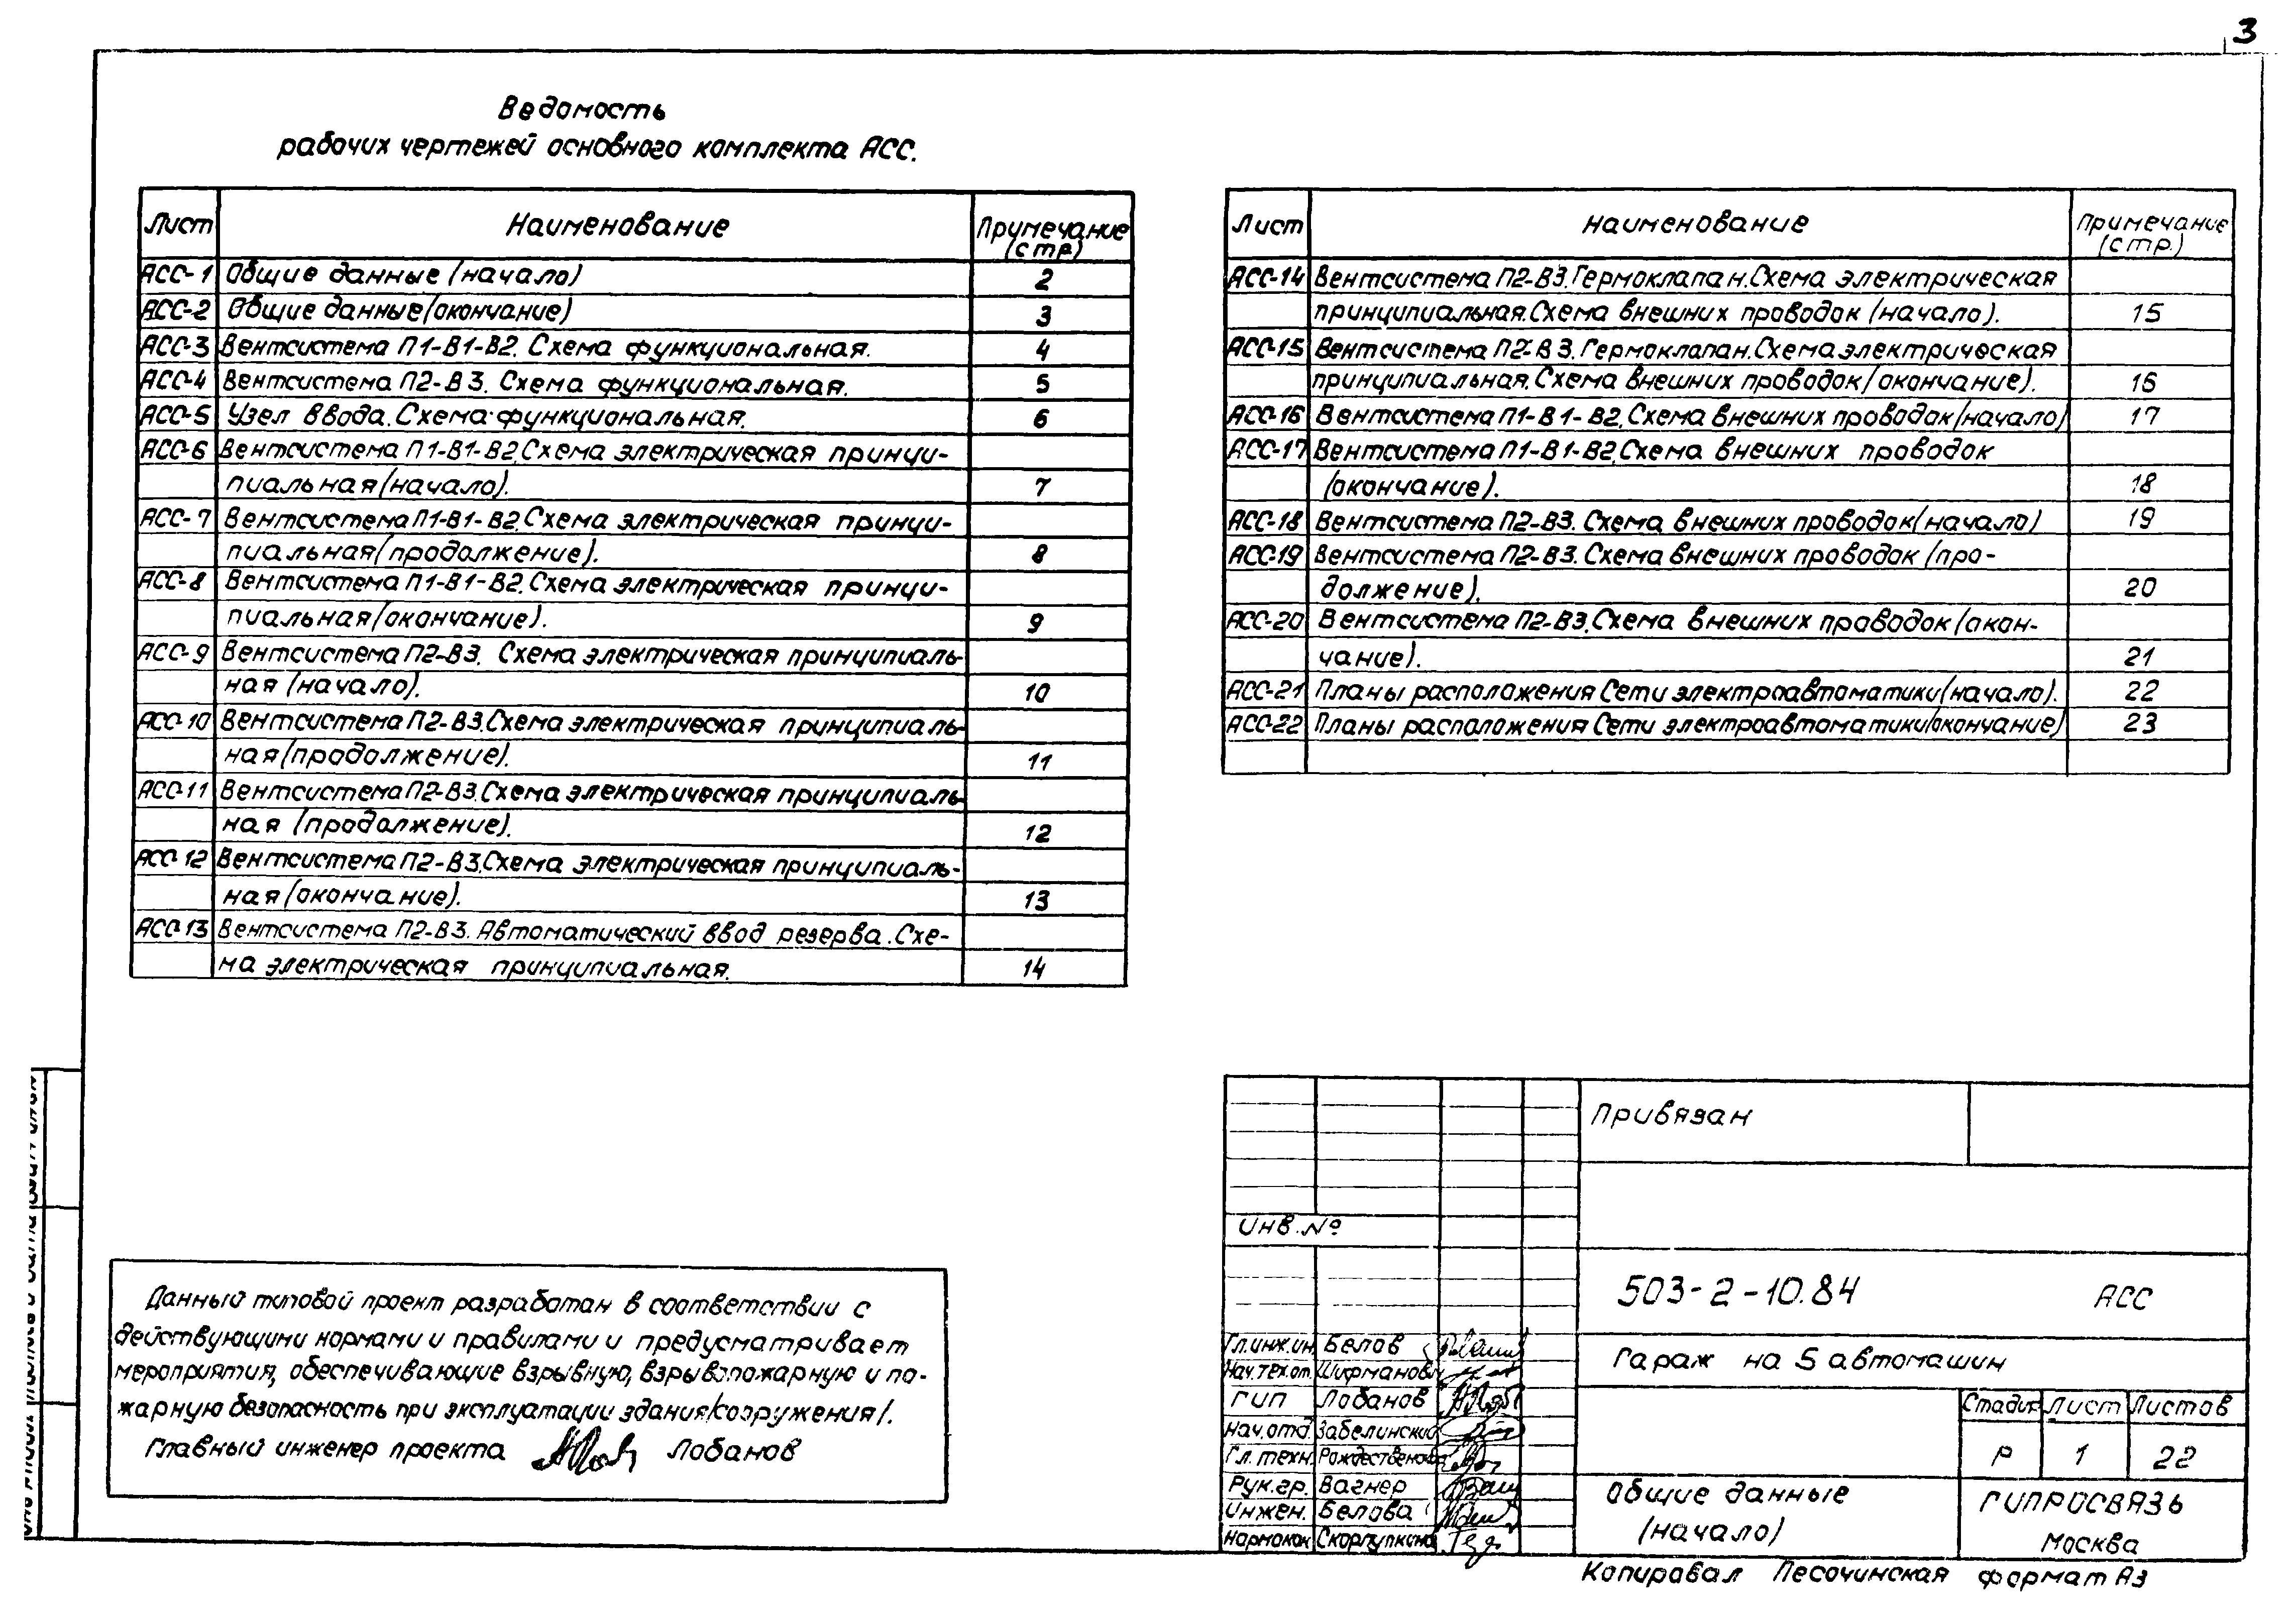 3
Ведомость
рабочих чертежей основного комплекта АСС.
Лист Наименование Примечание (стр.)
АСС-1 Общие данные (начало) 2
АСС-2 Общие данные (окончание) 3
АСС-3 Вентсистема П1-В1-В2. Схема функциональная. 4
АСС-4 Вентсистема П2-В3. Схема функциональная. 5
АСС-5 Узел ввода. Схема функциональная. 6
АСС-6 Вентсистема П1-В1-В2. Схема электрическая принци-
пиальная (начало). 7
АСС-7 Вентсистема П1-В1-В2. Схема электрическая принци-
пиальная (продолжение). 8
АСС-8 Вентсистема П1-В1-В2. Схема электрическая принци-
пиальная (окончание). 9
АСС-9 Вентсистема П2-В3. Схема электрическая принципиаль-
ная (начало). 10
АСС-10 Вентсистема П2-В3. Схема электрическая принципиаль-
ная (продолжение). 11
АСС-11 Вентсистема П2-В3. Схема электрическая принципиаль-
ная (продолжение). 12
АСС-12 Вентсистема П2-В3. Схема электрическая принципиаль-
ная (окончание). 13
АСС-13 Вентсистема П2-В3. Автоматический ввод резерва. Схе-
ма электрическая принципиальная. 14
Лист Наименование Примечание (стр.)
АСС-14 Вентсистема П2-В3. Гермоклапан. Схема электрическая
принципиальная. Схема внешних проводок (начало). 15
АСС-15 Вентсистема П2-В3. Гермоклапан. Схема электрическая
принципиальная. Схема внешних проводок (окончание). 16
АСС-16 Вентсистема П1-В1-В2. Схема внешних проводок (начало) 17
АСС-17 Вентсистема П1-В1-В2. Схема внешних проводок
(окончание). 18
АСС-18 Вентсистема П2-В3. Схема внешних проводок (начало) 19
АСС-19 Вентсистема П2-В3. Схема внешних проводок (про-
должение). 20
АСС-20 Вентсистема П2-В3. Схема внешних проводок (окон-
чание). 21
АСС-21 Планы расположения Сети электроавтоматики (начало). 22
АСС-22 Планы расположения Сети электроавтоматики (окончание) 23
Данный типовой проект разработан в соответствии с
действующими нормами и правилами и предусматривает
мероприятия, обеспечивающие взрывную, взрывопожарную и по-
жарную безопасность при эксплуатации здания /сооружения/.
Главный инженер проекта Лобанов
Привязан
Инв. №
503-2-10.84 АСС
Гл.инж.ин. Белов
Нач.тех.от. Шифманович
ГИП Лобанов
Нач.отд. Забелинский
Гл.техн. Рождественская
Рук.гр. Вагнер
Инжен. Белова
Нормокон. Скорлупкина
Гараж на 5 автомашин
Стадия Лист Листов
Р 1 22
Общие данные
(начало)
ГИПРОСВЯЗЬ
Москва
Копировал Песочинская формат А3